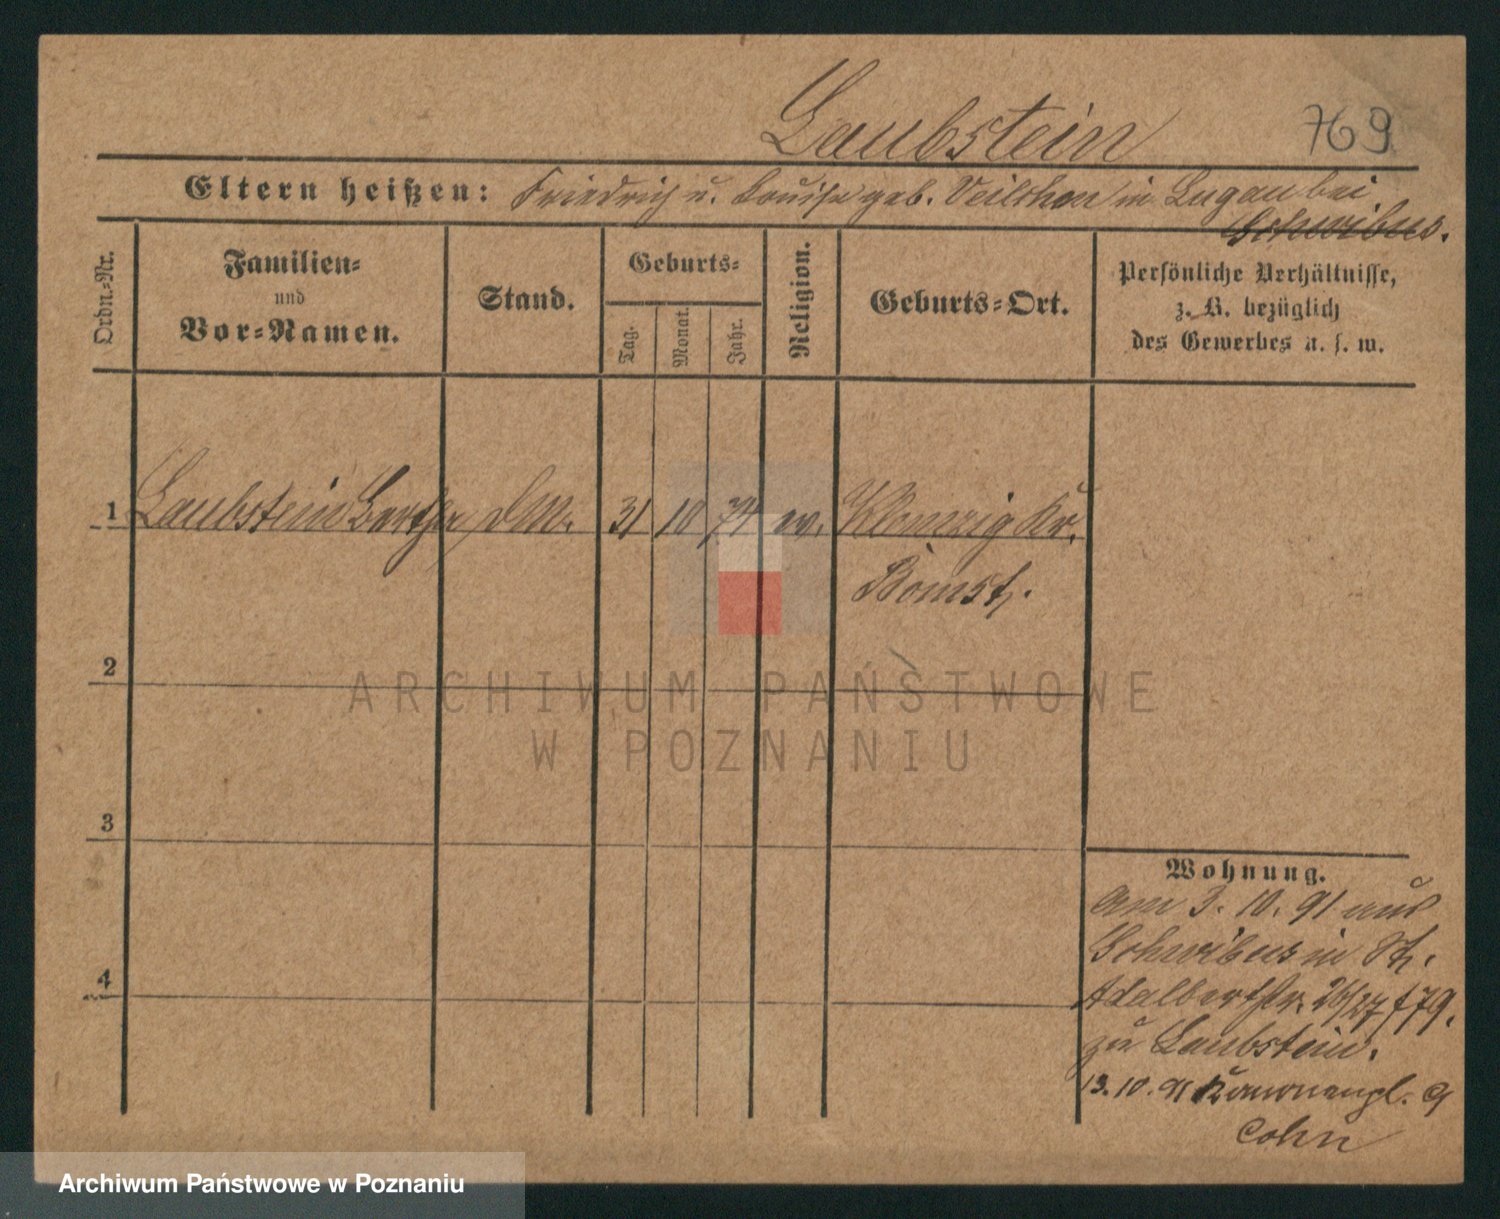 Laubstein
769
Eltern heißen: Friedrich u. Louise geb. Veilchen in Lugau bei
Schwiebus.
Ordn.-Nr.
Familien-
und
Vor-Namen.
Stand.
Geburts-
Tag.
Monat.
Jahr.
Religion.
Geburts-Ort.
Persönliche Verhältnisse,
z. B. bezüglich
des Gewerbes u. s. w.
1 Laubstein Bertha, DM. 31 10 74 ev. Klemzig Kr.
Bomst.
2
3
4
Wohnung.
am 3. 10. 91 aus
Schwiebus in St.
Adalbertstr. 26/27 f 79.
zu Laubstein.
13. 10. 91 9
Cohn
ARCHIWUM PAŃSTWOWE
W POZNANIU
Archiwum Państwowe w Poznaniu